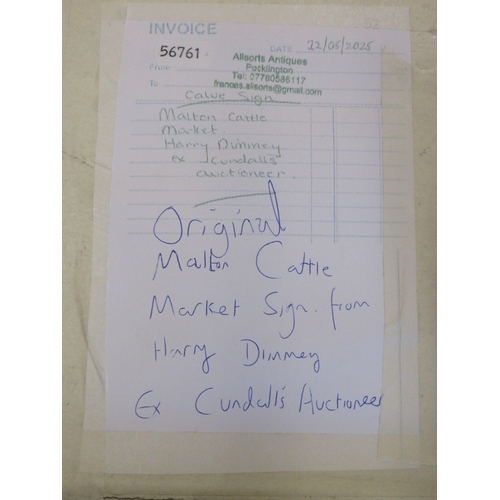 INVOICE
56761
DATE 22/05/2025
Allsorts Antiques
From Pocklington
Tel: 07780586117
To frances.allsorts@gmail.com
Calve Sign
Malton Cattle
Market.
Harry Dimmey
ex Cundall's
auctioneer.
Original
Malton Cattle
Market Sign. from
Harry Dimmey
Ex Cundall's Auctioneer